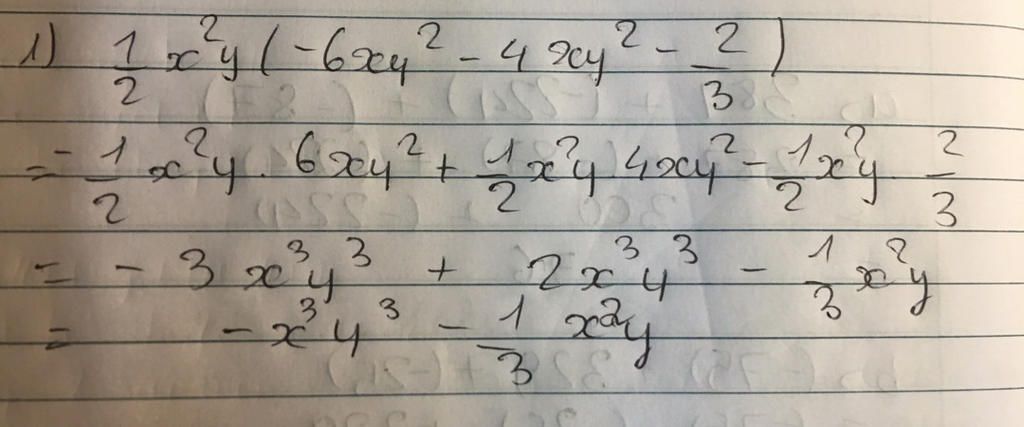 1) 1/2 x²y (-6xy² - 4xy² - 2/3)
= - 1/2 x²y . 6xy² + 1/2 x²y 4xy² - 1/2 x²y 2/3
= - 3x³y³ + 2x³y³ - 1/3 x²y
= - x³y³ - 1/3 x²y